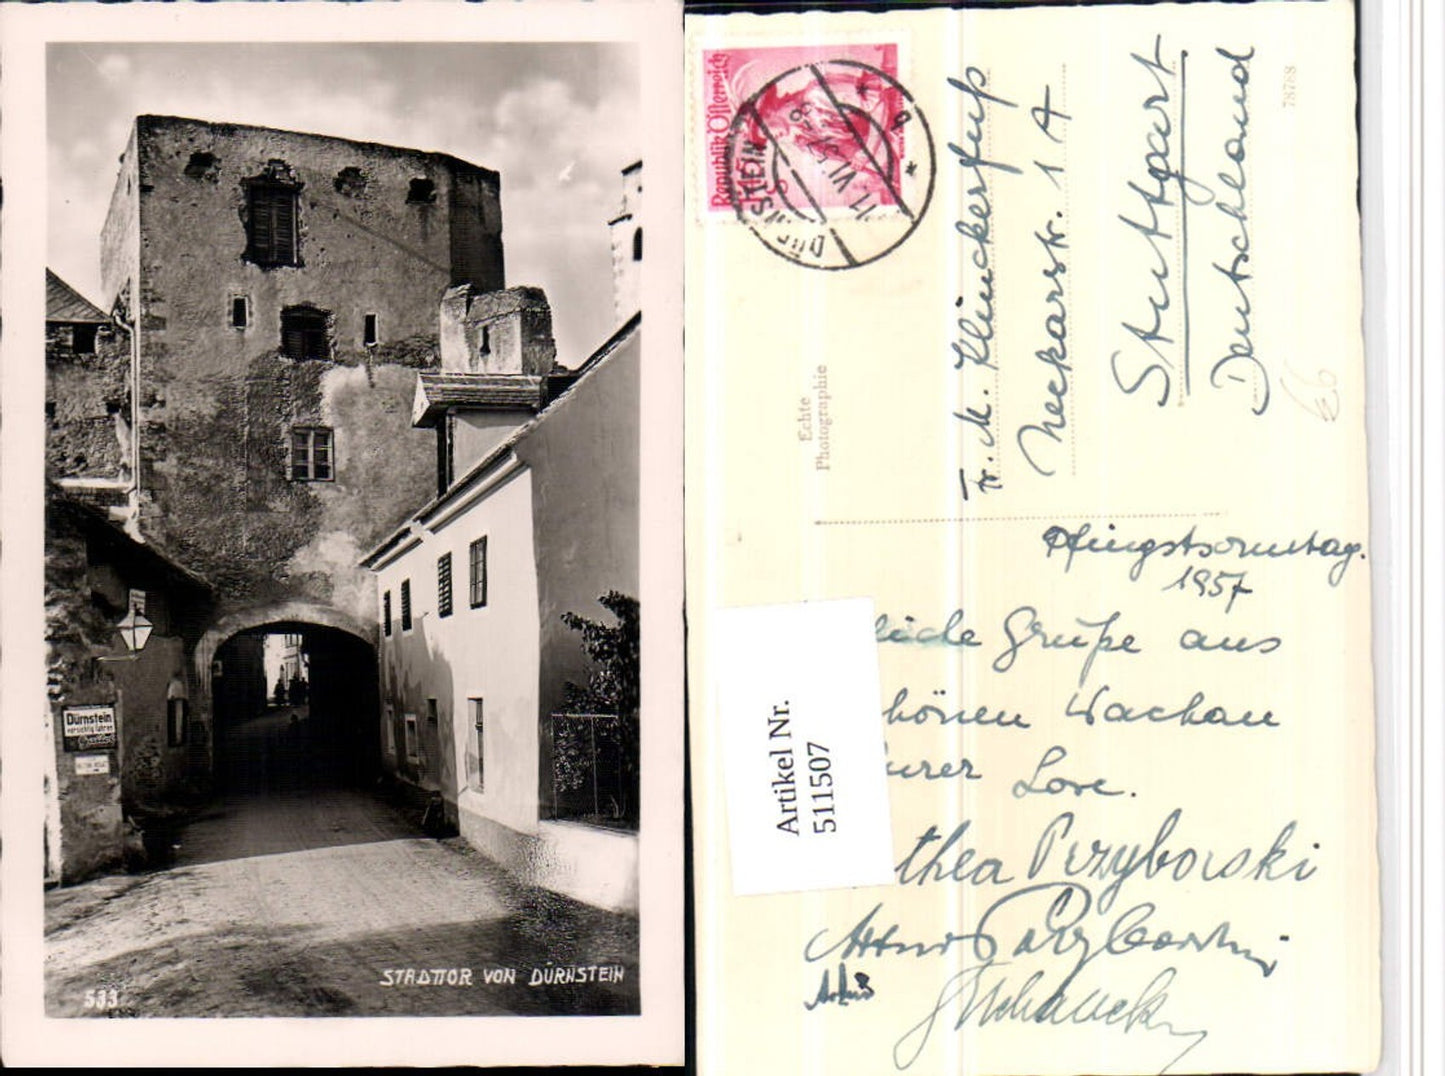 Dürnstein
vorsichtig fahren
533
STADTTOR VON DÜRNSTEIN
Republik Österreich
DÜRNSTEIN
11. VI. 57
Echte
Photographie
78768
Fr. M. Klinckerfuß
Neckarstr. 1 A
Stuttgart
Deutschland
Pfingstsonntag.
1957
liche Grüße aus
hönen Wachau
urer Lore.
thea Przyborski
Artur Przyborski
Artikel Nr.
511507